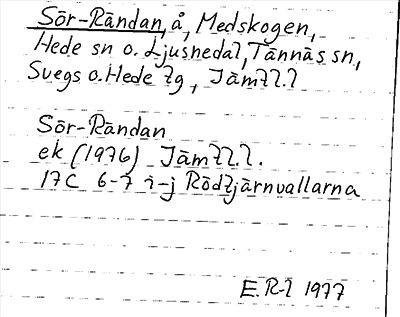 Sör-Rändan, å, Medskogen,
Hede sn o. Ljusnedal, Tännäs sn,
Svegs o. Hede tg, Jämtl. l
Sör-Rändan
ek (1976) Jämtl. l.
17C 6-7 i-j Rödtjärnvallarna
E. R-l 1977